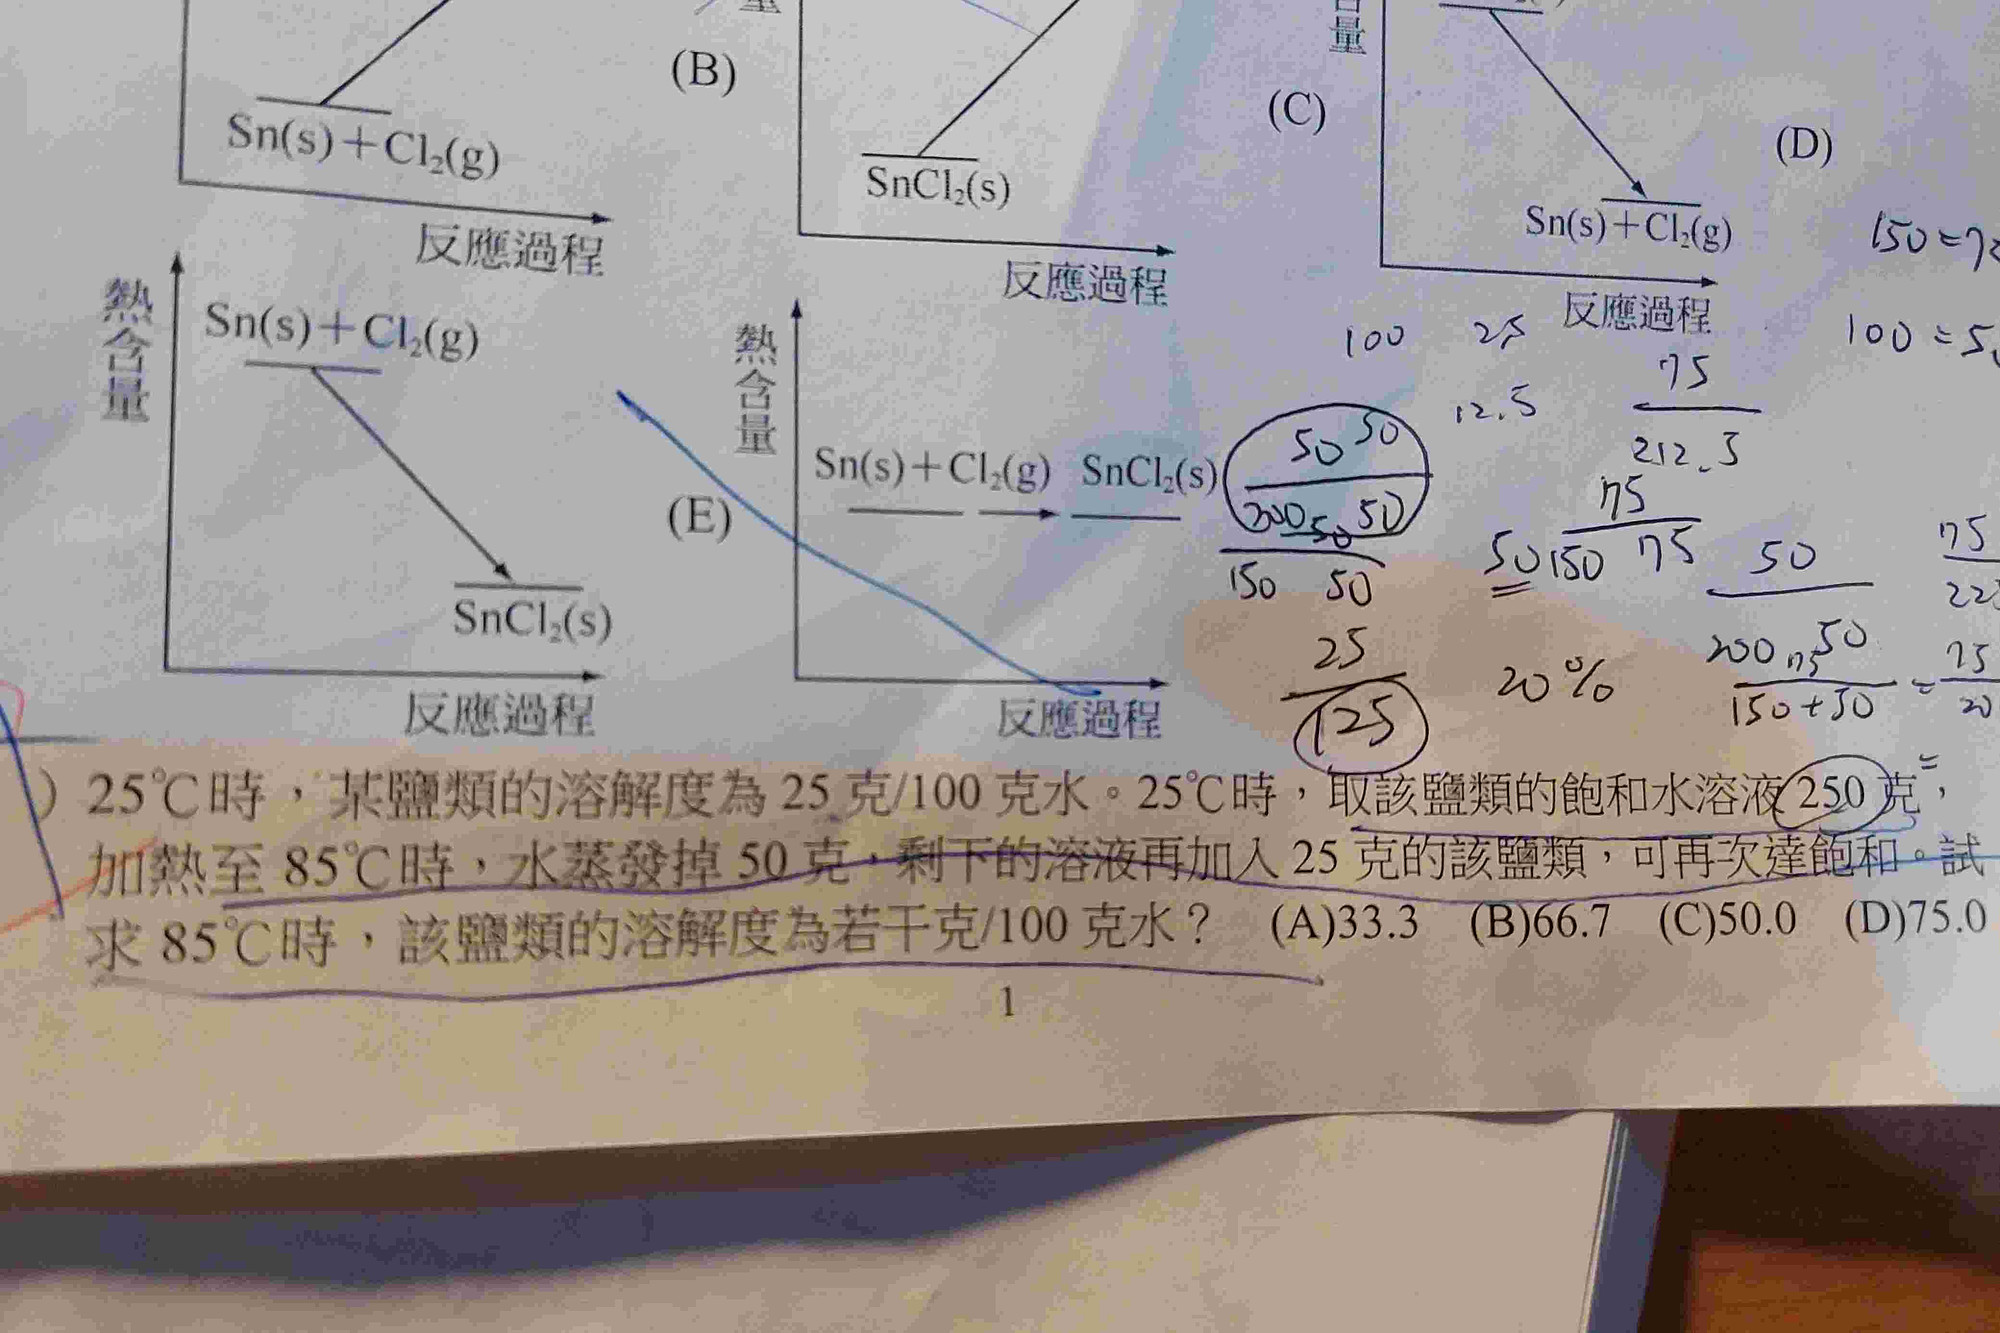 量
(B)
(C)
量
(D)
Sn(s)+Cl₂(g)
SnCl₂(s)
Sn(s)+Cl₂(g)
反應過程
反應過程
反應過程
熱含量
Sn(s)+Cl₂(g)
SnCl₂(s)
反應過程
(E)
熱含量
Sn(s)+Cl₂(g) SnCl₂(s)
反應過程
100 25
12.5
75
212.5
50 50
200 50 50
150 50
25
125
20%
75
50 150 75
50
200 75 50
150+50
=
75
100=5
)25℃時,某鹽類的溶解度為 25 克/100 克水。25℃時,取該鹽類的飽和水溶液 250 克,
加熱至 85℃時,水蒸發掉 50 克,剩下的溶液再加入 25 克的該鹽類,可再次達飽和。試
求 85℃時,該鹽類的溶解度為若干克/100 克水? (A)33.3 (B)66.7 (C)50.0 (D)75.0
1